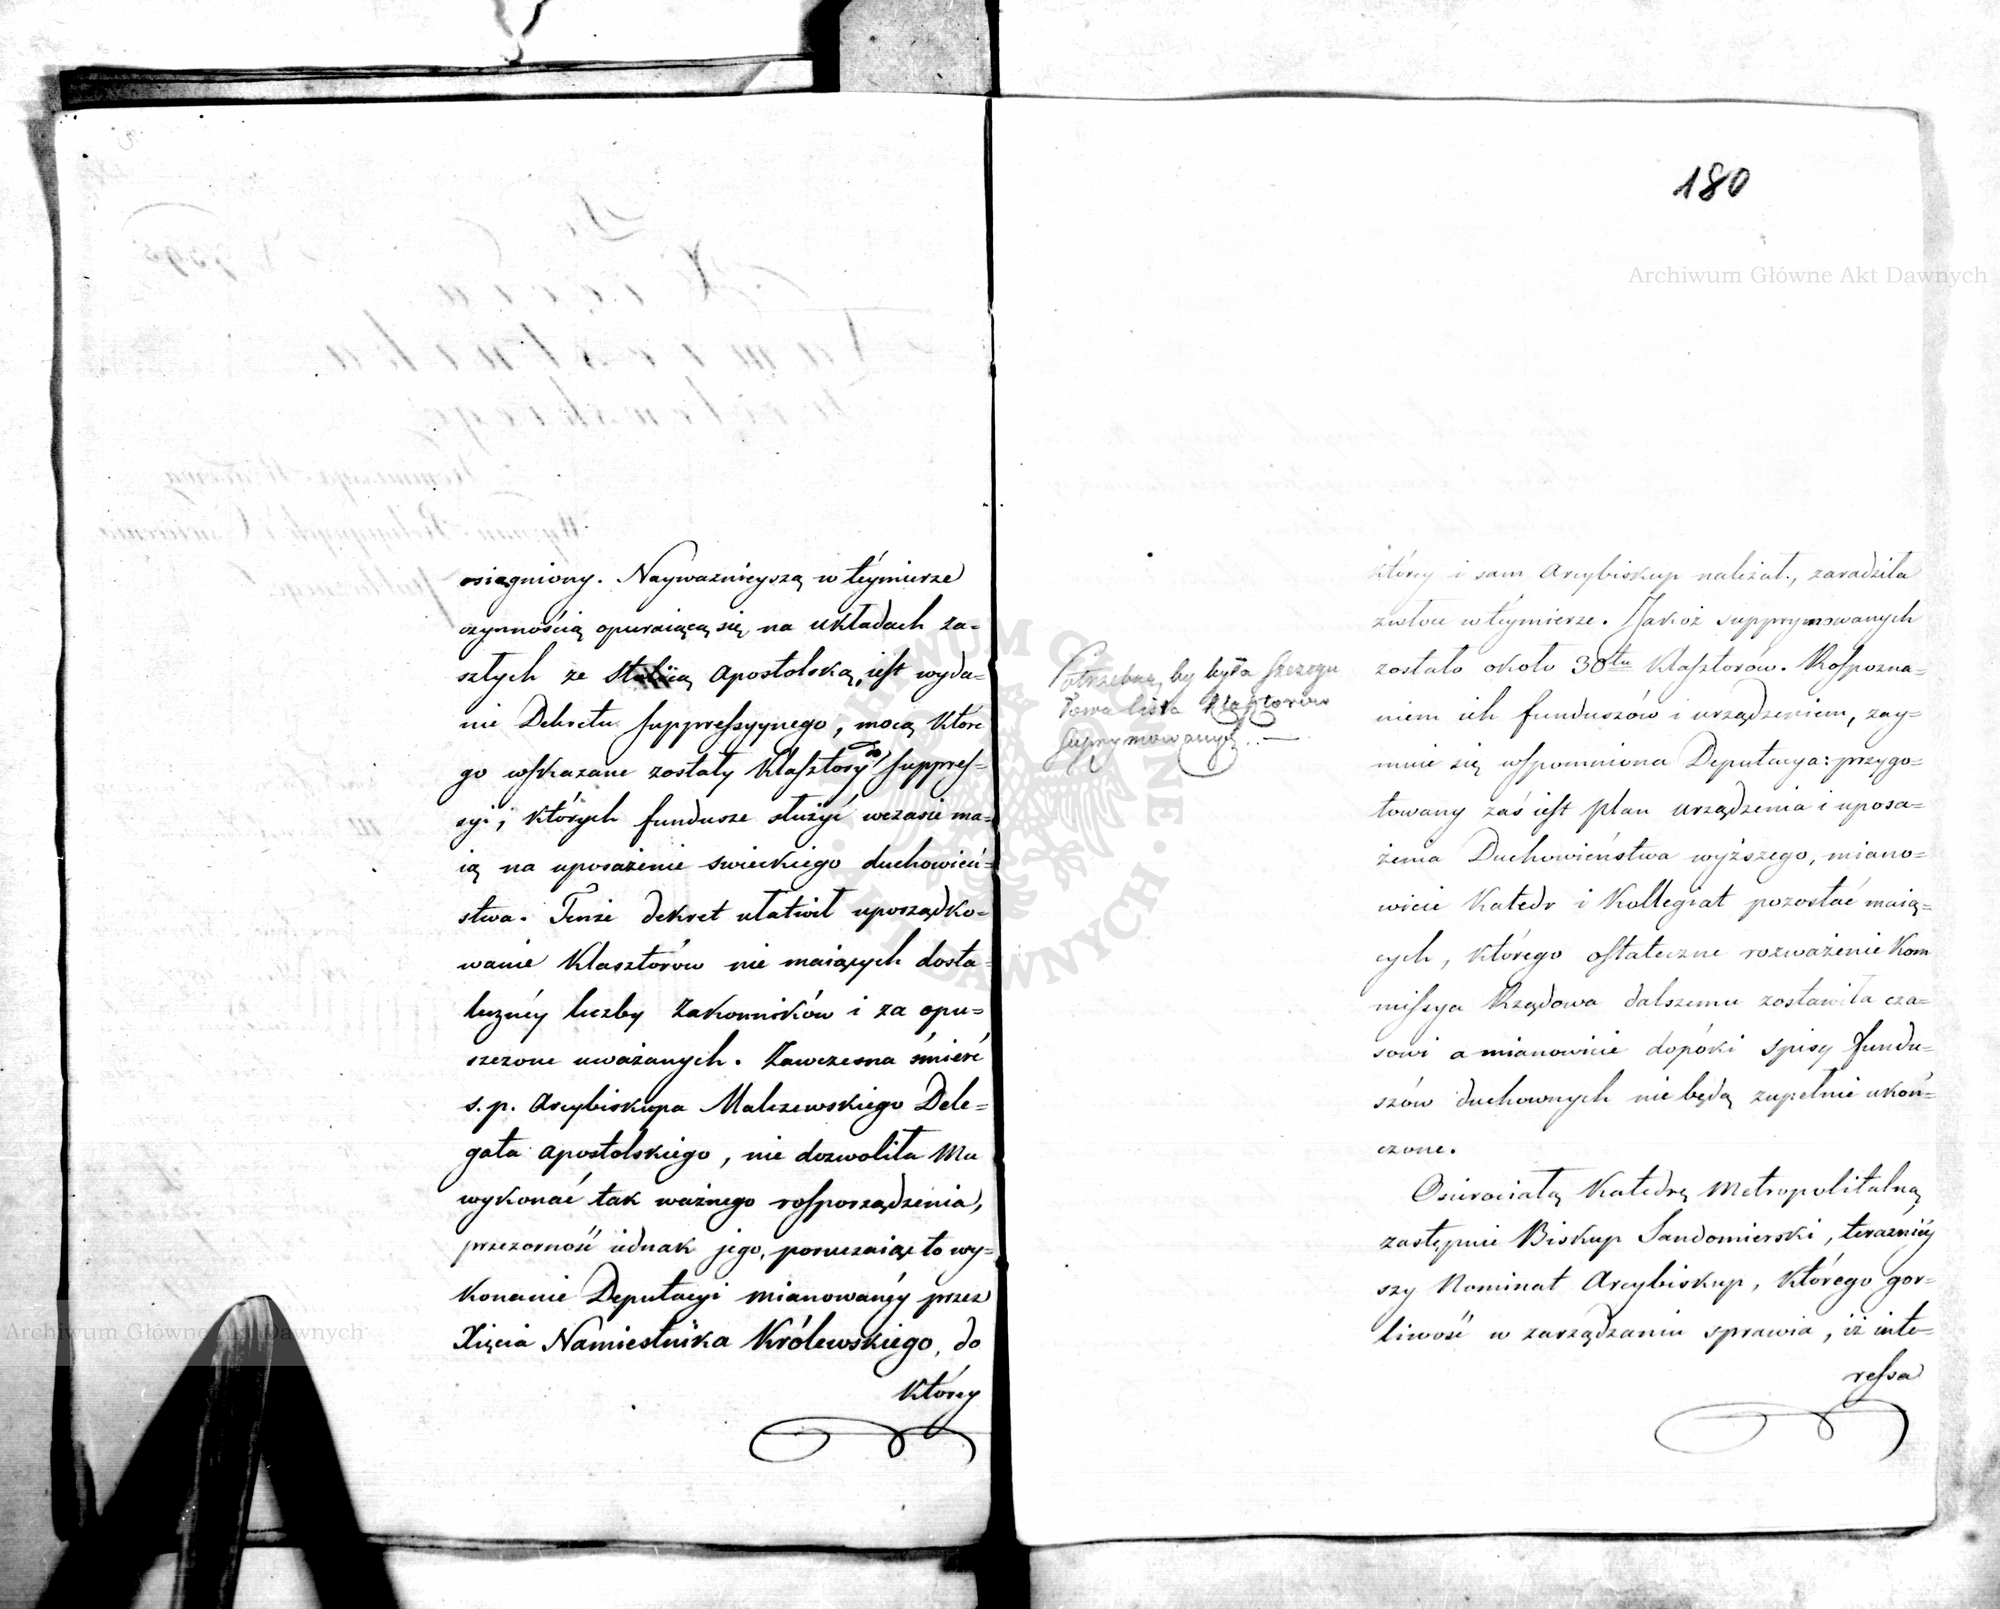 osiągniony. Nayważnieyszą w téymierze
czynnością opieraiącą się na układach za-
szłych ze Stolicą apostolską, iest wyda-
nie Dekretu suppressyynego, mocą które
go wskazane zostały Klasztory do suppres-
syi, których fundusze służyć wczasie ma-
ią na uposażenie swieckiego duchowień-
stwa. Tenże dekret ułatwił uporządko-
wanie Klasztórów nie maiących dosta-
teczney liczby Zakonników i za opu-
szczone uważanych. Zawczesna śmierć
s. p. Arcybiskupa Malczewskiego Dele-
gata apostolskiego, nie dozwoliła Mu
wykonać tak ważnego rosporządzenia,
przezorność iednak jego, poruczaiąc to wy-
konanie Deputacyi mianowanéy przez
Xięcia Namiestnika Królewskiego, do
którey
180
Archiwum Główne Akt Dawnych
Potrzebną by była szczegu
łowa lista klasztorow
suprymowanych. —
którey i sam Arcybiskup należał, zaradziła
zwłoce w téymierze. Jakoż supprymowanych
zostało około 30tu Klasztorów. Rospozna-
niem ich funduszów i urządzeniem, zay-
mie się wspomniona Deputacya: przygo-
towany zaś iest plan urządzenia i uposa-
żenia Duchowieństwa wyższego, miano-
wicie Katedr i Kollegiat pozostać maią-
cych, którego ostateczne rozważenie Kom
missya Rządowa dalszemu zostawiła cza-
sowi a mianowicie dopóki spisy fundu-
szów duchownych nie będą zupełnie ukoń-
czone.
Osierociałą Katedrę Metropolitalną
zastępuie Biskup Sandomierski, teraźniey
szy Nominat Arcybiskup, którego gor-
liwość w zarządzaniu sprawia, iż inte-
ressa
Archiwum Główne Akt Dawnych